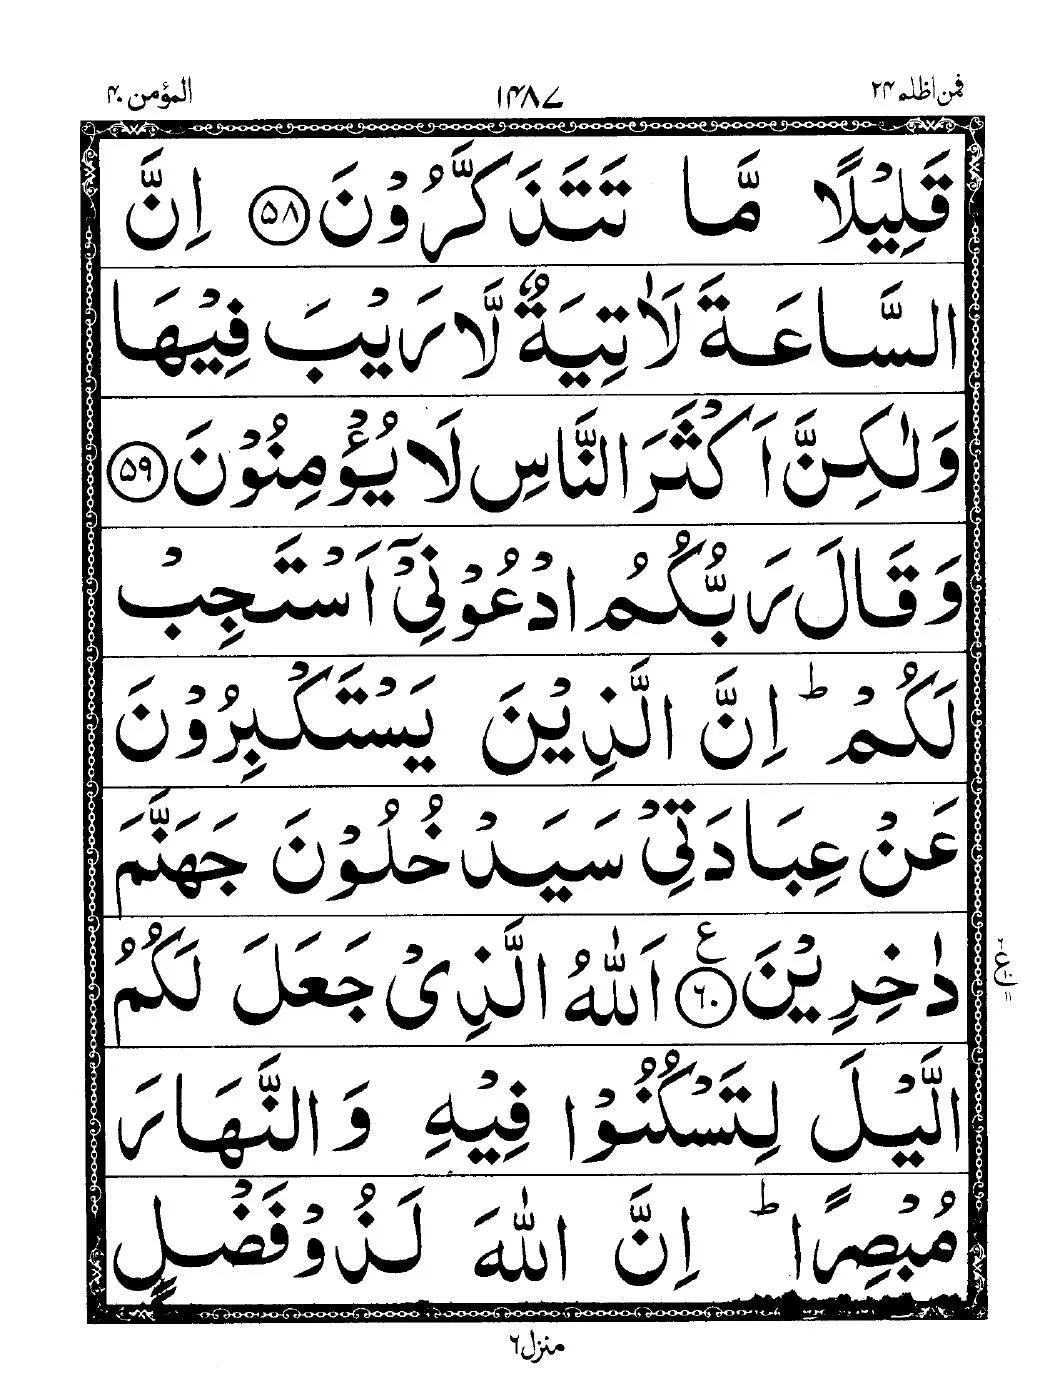 فمن اظلم ۲۴
۱۴۸۷
المؤمن ۴۰
قَلِيْلًا مَّا تَتَذَكَّرُوْنَ ۵۸ اِنَّ
السَّاعَةَ لَاٰتِيَةٌ لَّا رَيْبَ فِيْهَا
وَلٰكِنَّ اَكْثَرَ النَّاسِ لَا يُؤْمِنُوْنَ ۵۹
وَقَالَ رَبُّكُمُ ادْعُوْنِیْٓ اَسْتَجِبْ
لَكُمْ ؕ اِنَّ الَّذِيْنَ يَسْتَكْبِرُوْنَ
عَنْ عِبَادَتِیْ سَيَدْخُلُوْنَ جَهَنَّمَ
دٰخِرِيْنَ ۶۰ ع اَللّٰهُ الَّذِیْ جَعَلَ لَكُمُ
ع ۱۰ ۱۱
الَّيْلَ لِتَسْكُنُوْا فِيْهِ وَالنَّهَارَ
مُبْصِرًا ؕ اِنَّ اللّٰهَ لَذُوْ فَضْلٍ
منزل ۶